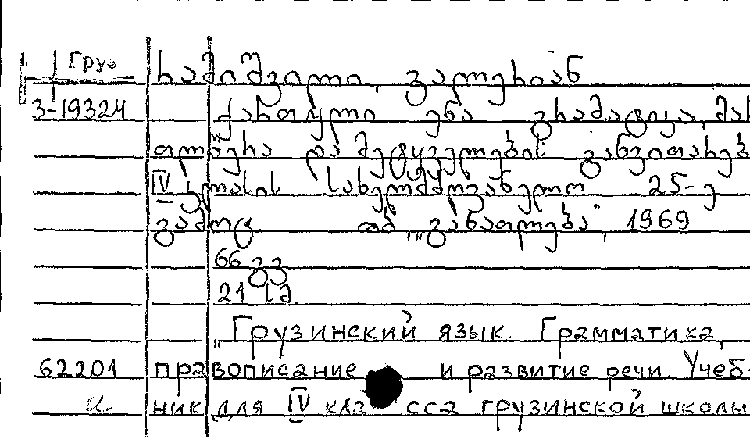 Груз
რამიშვილი, ვალერიან
3-19324 ქართული ენა გრამატიკა, მარ
თლწერა და მეტყველების განვითარებ
IV კლასის სახელმძღვანელო 25-ე
გამოც თბ „განათლება", 1969
66 გვ
21 სმ.
„Грузинский язык. Грамматика,
62201 правописание и развитие речи. Учеб-
ник для IV класса грузинской школы